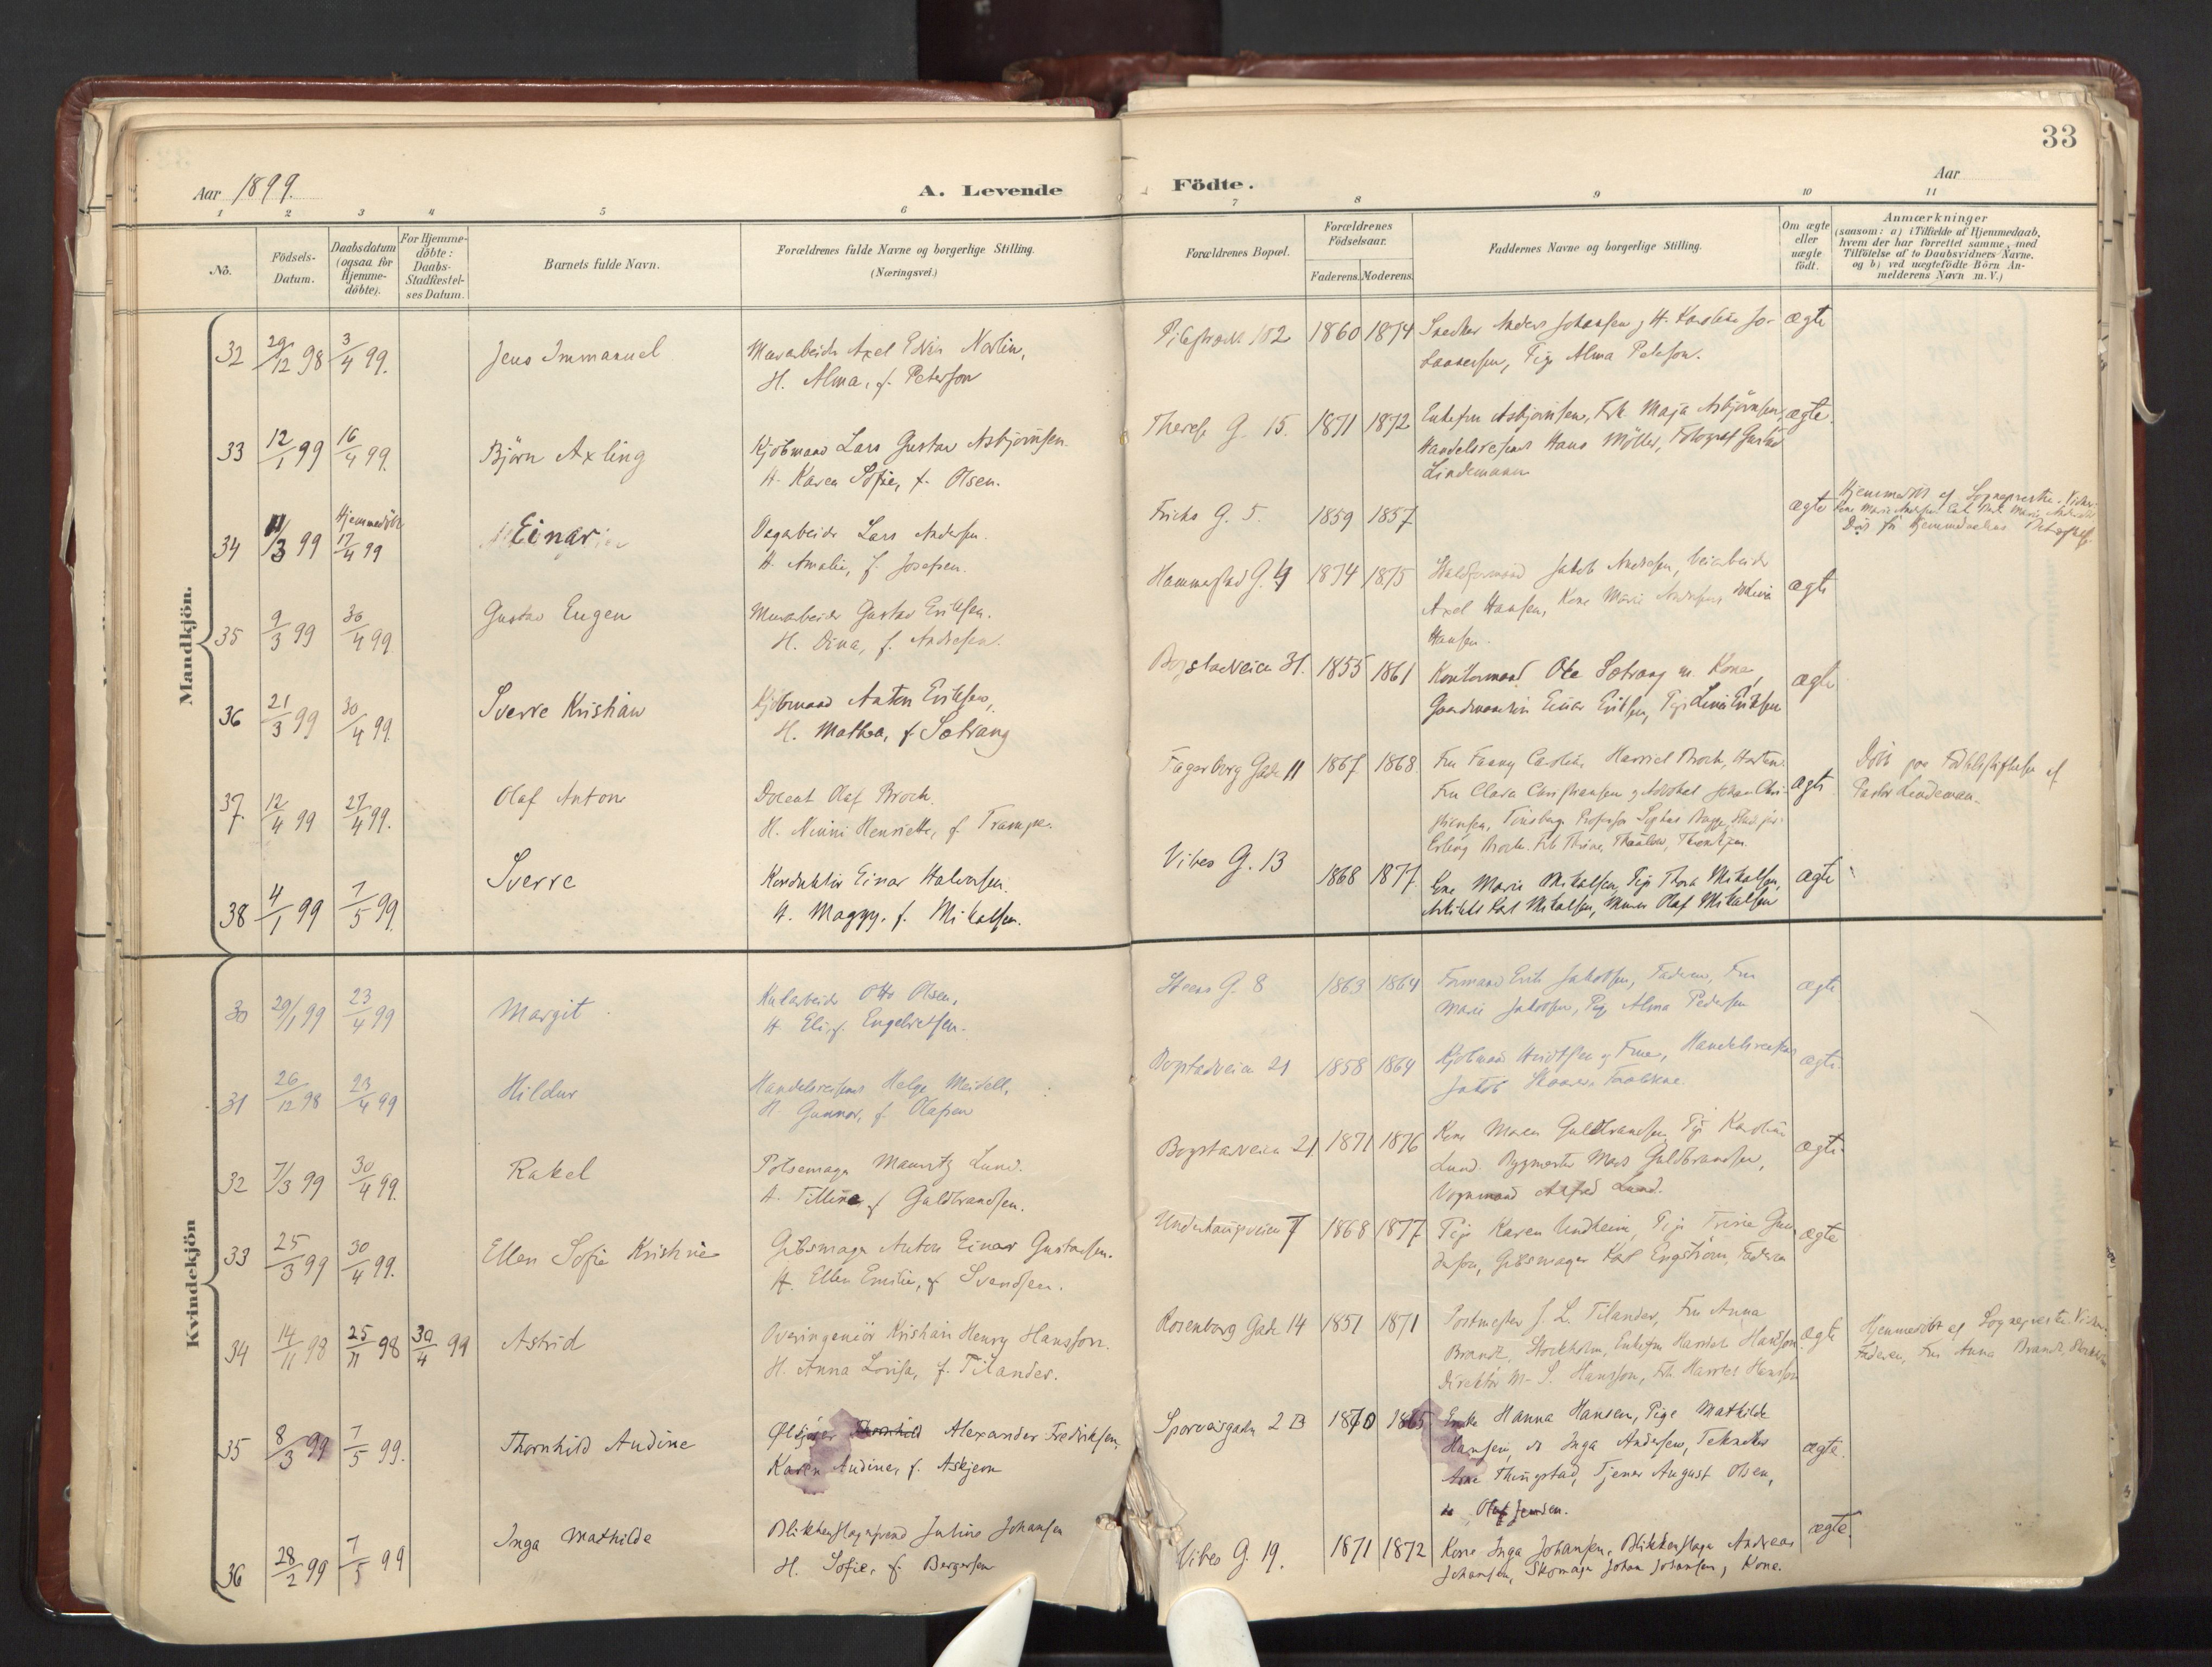 33
Aar 1899.
A. Levende
Födte.
Aar
1 2 3 4 5 6 7 8 9 10 11
No.
Födsels-
Datum.
Daabsdatum
(ogsaa for
Hjemme-
döbte).
For Hjemme-
döbte:
Daabs-
Stadfæstel-
ses Datum.
Barnets fulde Navn.
Forældrenes fulde Navne og borgerlige Stilling.
(Næringsvei.)
Forældrenes Bopæl.
Forældrenes
Födselsaar.
Faderens. Moderens.
Faddernes Navne og borgerlige Stilling.
Om ægte
eller
uægte
födt.
Anmærkninger
(saasom: a) i Tilfælde af Hjemmedaab,
hvem der har forrettet samme, med
Tilföielse af to Daabsvidners Navne.
og b) ved uægtefödte Börn An-
melderens Navn m. V.)
Mandkjön.
32 29/12 98 3/4 99. Jens Immanuel
Murarbeider Axel Edvin Norlin,
H. Alma, f. Peterson
Pilestrædet 102 1860 1874
Snedker Anders Johansen, H. Karoline
Pige Alma Peterson.
ægte
33 12/1 99 16/4 99. Björn Axling
Kjöbmand Lars Gustav Asbjörnsen
H. Karen Sofie, f. Olsen.
Therese G. 15. 1871 1872
Enkefru Asbjörnsen, Frk. Maja Asbjörnsen,
Handelsreisende Hans Möller, Fotograf Gustav
Lindemann
ægte.
34 11/3 99 Hjemmedöbt
17/4 99 Einar
Vegarbeider Lars Andersen.
H. Amalie, f. Josefsen.
Frichs G. 5. 1859 1857
ægte
Hjemmedöbt af Sognepresten
35 9/3 99 30/4 99. Gustav Eugen
Murarbeider Gustav Eriksen.
H. Dina, f. Andresen.
Hammerstad G. 4 1874 1875
Jakob Andresen, Veiarbeider
Axel Hansen, Kone Marie
Hansen.
ægte
36 21/3 99 30/4 99. Sverre Kristian
Kjöbmand Anton Eriksen,
H. Mathea, f. Sotrang
Bogstadveien 31. 1855 1861
Kontormand Ole Sotrang m. Kone,
Einar Eriksen, Pige Lina Eriksen
ægte
37. 12/4 99 27/4 99. Olaf Anton
Docent Olaf Broch.
H. Ninni Henriette, f. Trampe.
Fagerborg Gade 11 1867 1868
Fru Fanny Caroline Harriet Broch, Horten.
Fru Clara Christiansen og Advokat Johan Chri-
stiansen, Professor Sophus Bugge, Stud. jur.
ægte
Döbt paa Födselsstiftelsen af
Pastor Lindeman.
38 4/1 99 7/5 99. Sverre
Konduktör Einar Halvorsen.
H. Maggy. f. Mikalsen.
Vibes G. 13 1868 1877.
Kone Marie Mikalsen, Pige Thora Mikalsen,
Arkitekt Karl Mikalsen, Murer Olaf Mikalsen
ægte
Kvindekjön
30 29/1 99 23/4 99 Margit
Kularbeider Otto Olsen,
H. Eli, f. Engebretsen.
Steens G. 8 1863 1864
Formand Erik Jakobsen, Faderen, Fru
Marie Jakobsen, Pige Alma Pedersen
ægte.
31 26/12 98 23/4 99 Hildur
Handelsreisende Helge Meidell,
H. Gunnor, f. Olafsen
Bogstadveien 21 1858 1864
Kjöbmand og Frue, Handelsreisende
Jakob
ægte.
32 7/3 99 30/4 99. Rakel
Pölsemager Mauritz Lund.
H. Tilline, f. Guldbrandsen.
Bogstadveien 21. 1871 1876
Kone Maren Guldbrandsen, Pige Karoline
Lund. Bygmester Mads Guldbrandsen,
Vognmand Alfred Lund.
ægte.
33 25/3 99 30/4 99. Ellen Sofie Kristine
Gibsmager Anton Einar Gustavsen.
H. Ellen Emilie, f. Svendsen.
Underhaugsveien 7 1868 1877
Pige Karen Lindheim, Pige Trine Gun-
dersen, Gibsmager Karl Engström, Faderen
ægte
34 14/11 98 25/11 98 30/4 99 Astrid
Overingeniör Kristian Henry Hansson.
H. Anna Lovisa, f. Tilander.
Rosenborg Gade 14 1851 1871
Postmester J. L. Tilander, Fru Anna
Brandt, Stockholm, Enkefru Harriet Hansson,
Direktör M. S. Hansson, Frk. Harriet Hansson
ægte
Hjemmedöbt af Sognepresten.
Faderen, Fru Anna Brandt, Stockholm
35 8/3 99 7/5 99. Thornhild Audine
Ölkjörer Thornhild Alexander Fredriksen,
Karen Audine, f. Askjem
Sporveisgaden 2 B 1870 1865
Enke Hanna Hansen, Pige Mathilde
Hansen, do Inga Andersen, Tekniker
Arne Thingstad, Tjener August Olsen,
do Oluf Jensen.
ægte.
36 28/2 99 7/5 99 Inga Mathilde
Blikkenslagersvend Julius Johansen
H. Sofie, f. Bergersen
Vibes G. 19. 1871 1872
Kone Inga Johansen, Blikkenslager Andreas
Johansen, Skomager Johan Johansen, Kone.
ægte.